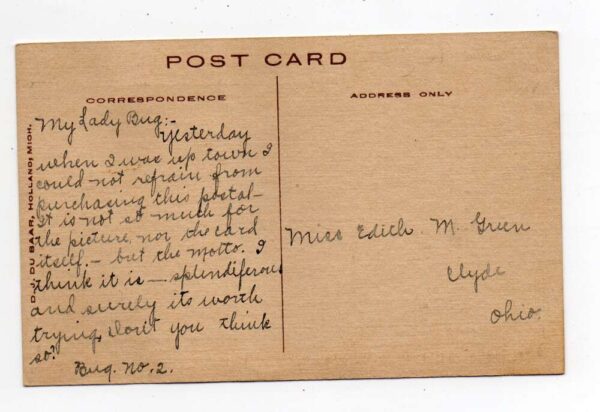 POST CARD
CORRESPONDENCE
ADDRESS ONLY
My Lady Bug:-
Yesterday
when I was up town I
could not refrain from
purchasing this postal-
It is not so much for
the picture, nor the card
itself.- but the motto. I
think it is - splendiferous
and surely its worth
trying, Don't you think
so?
Bug. No. 2.
Miss Edith M. Green
Clyde
Ohio.
DU SAAR, HOLLAND, MICH.